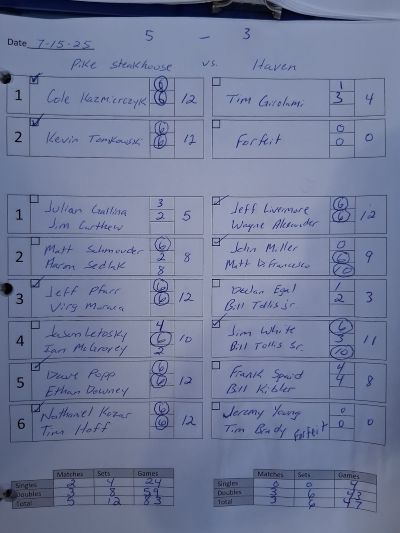 5 - 3
Date 7-15-25
Pike Steakhouse vs. Haven
1 Cole Kazmierczyk 6 6 12 Tim Girolami 1 3 4
2 Kevin Tomkowski 6 6 12 Forfeit 0 0 0
1 Julian Gallina 3 2 5 Jeff Livermore 6 6 12
Jim Carthew Wayne Alexander
2 Matt Schmouder 6 2 8 8 John Miller 0 6 10 9
Aaron Sedlak Matt DiFrancesco
3 Jeff Pfarr 6 6 12 Declan Egal 1 2 3
Virg Bill Tollis jr.
4 Jason Letosky 4 6 2 10 Jim White 6 3 10 11
Ian McGrorey Bill Tollis Sr.
5 Dave Popp 6 6 12 Frank Spaid 4 4 8
Ethan Downey Bill Kibler
6 Nathanel Kozar 6 6 12 Jeremy Young 0 0 0
Tim Hoff Tim Brady Forfeit
Matches Sets Games Matches Sets Games
Singles 2 4 24 Singles 0 0 4
Doubles 3 8 59 Doubles 3 6 43
Total 5 12 83 Total 3 6 47